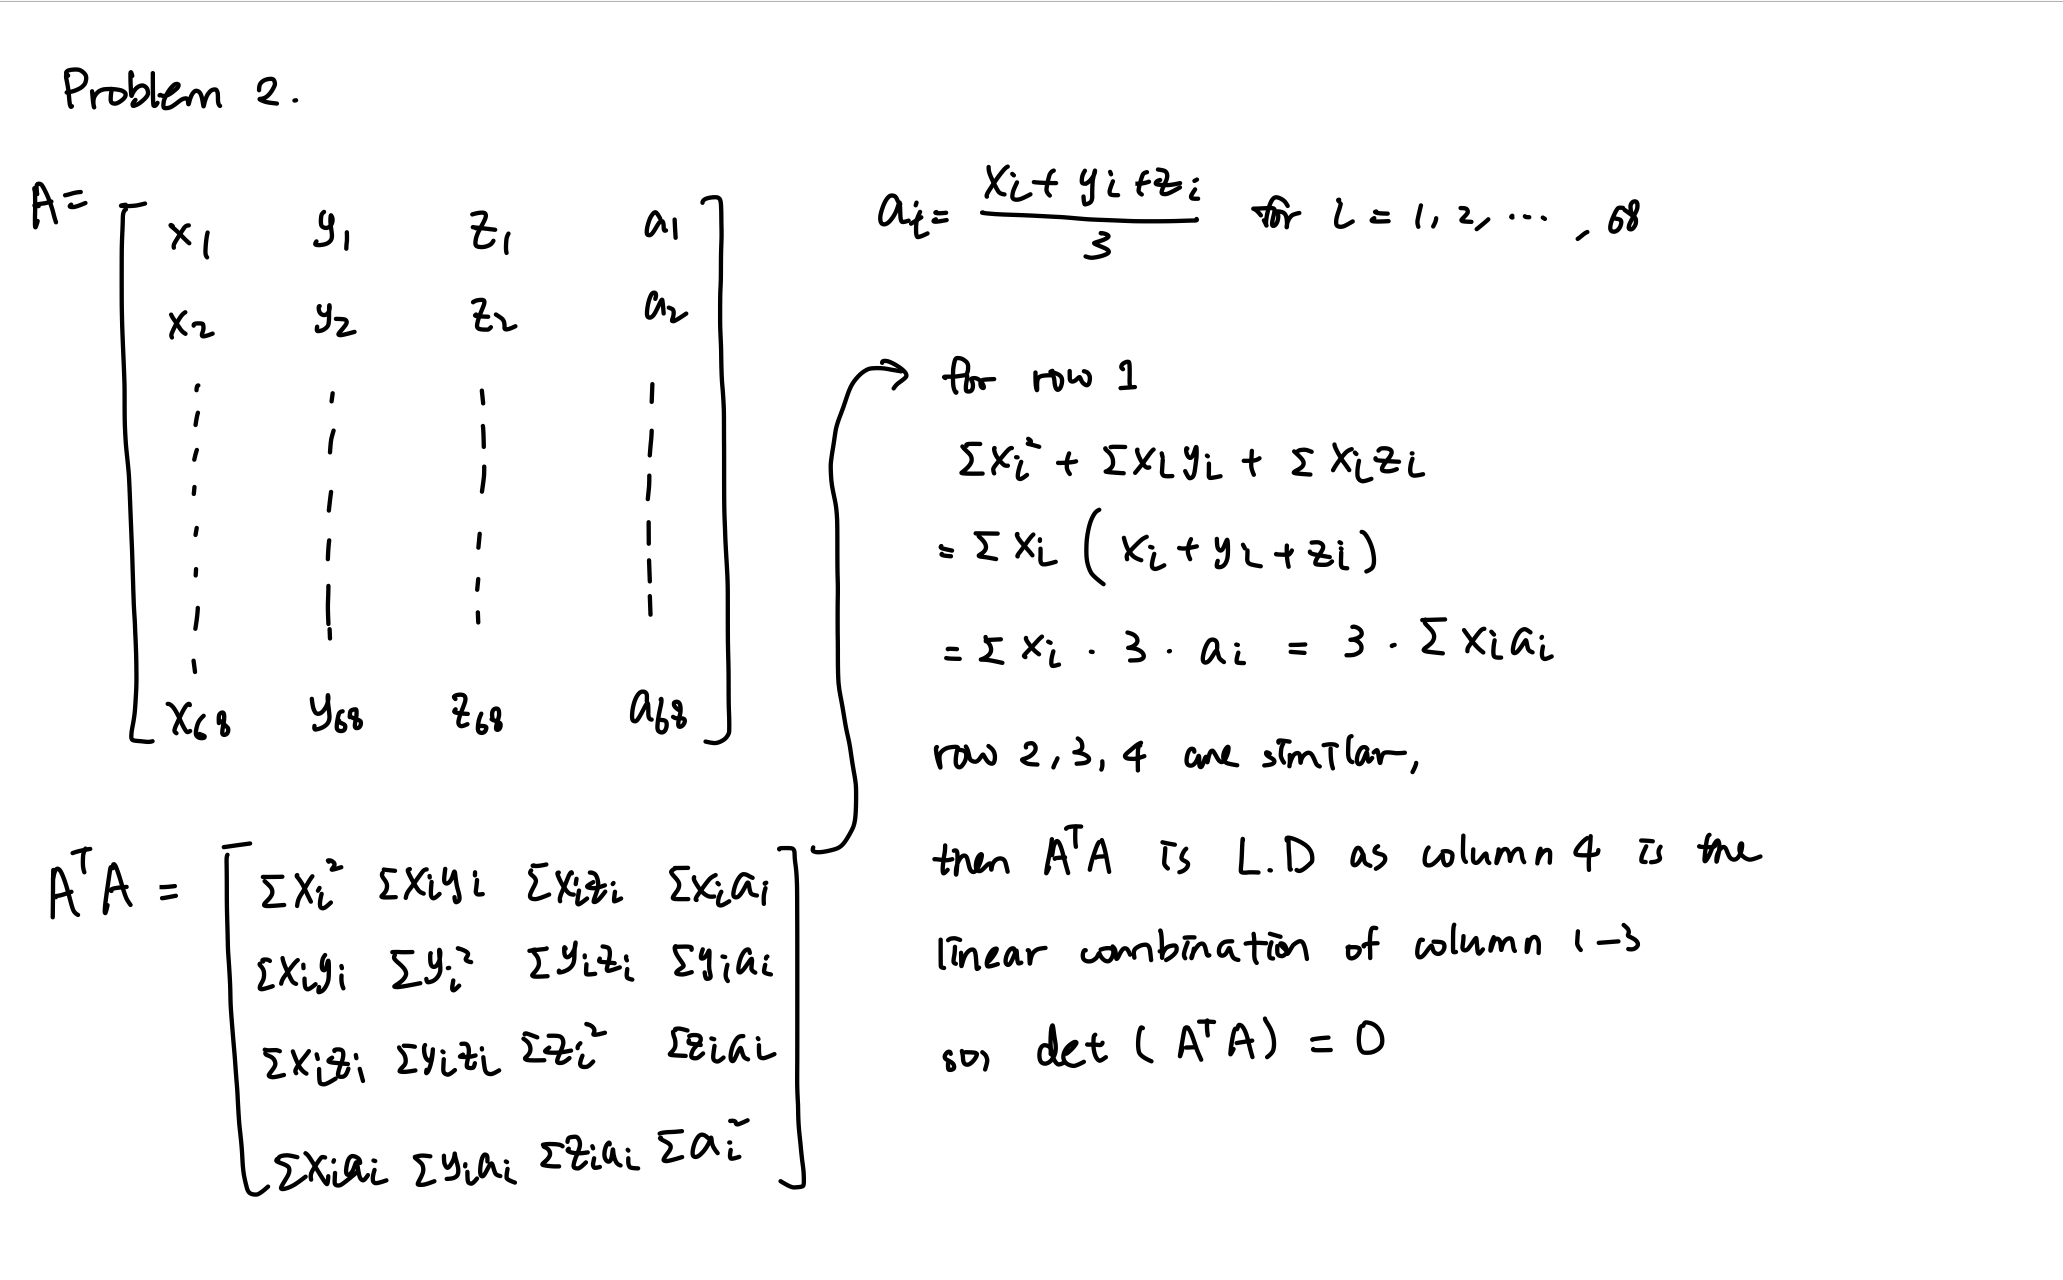 Problem 2.
A= [ x₁ y₁ z₁ a₁
x₂ y₂ z₂ a₂
x₆₈ y₆₈ z₆₈ a₆₈ ]
AᵀA = [ Σxᵢ² Σxᵢyᵢ Σxᵢzᵢ Σxᵢaᵢ
Σxᵢyᵢ Σyᵢ² Σyᵢzᵢ Σyᵢaᵢ
Σxᵢzᵢ Σyᵢzᵢ Σzᵢ² Σzᵢaᵢ
Σxᵢaᵢ Σyᵢaᵢ Σzᵢaᵢ Σaᵢ² ]
aᵢ = (xᵢ + yᵢ + zᵢ)/3 for i = 1, 2, ..., 68
for row 1
Σxᵢ² + Σxᵢyᵢ + Σxᵢzᵢ
= Σxᵢ (xᵢ + yᵢ + zᵢ)
= Σxᵢ · 3 · aᵢ = 3 · Σxᵢaᵢ
row 2, 3, 4 are similar,
then AᵀA is L.D as column 4 is the
linear combination of column 1-3
so, det (AᵀA) = 0